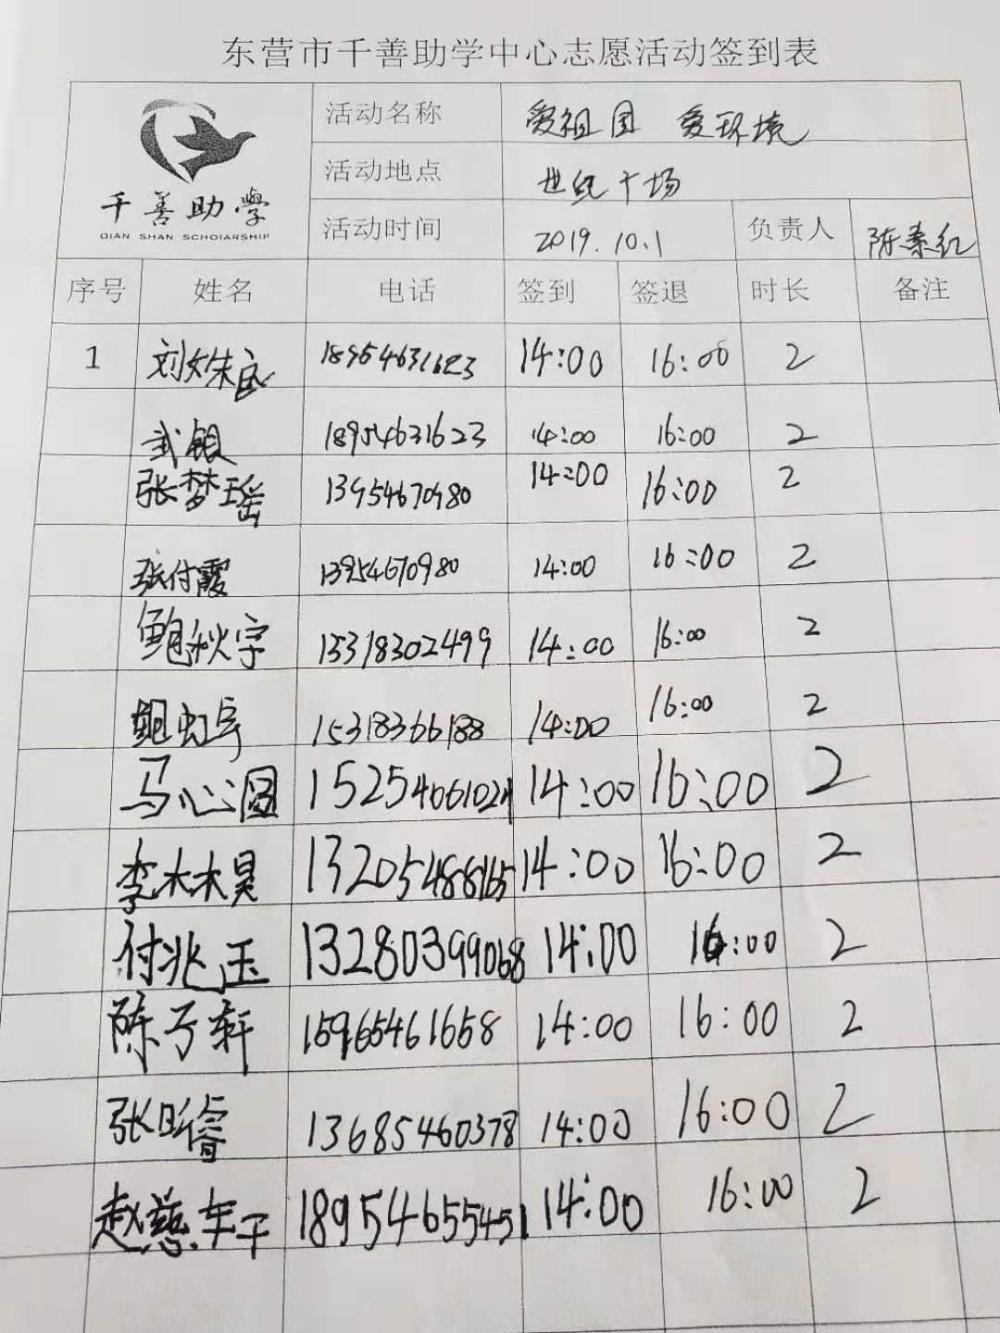 东营市千善助学中心志愿活动签到表
千善助学
QIAN SHAN SCHOLARSHIP
活动名称 爱祖国 爱环境
活动地点 世纪广场
活动时间 2019.10.1 负责人 陈素红
序号 姓名 电话 签到 签退 时长 备注
1 刘姝 18954631623 14:00 16:00 2
武银 18954631623 14:00 16:00 2
张梦瑶 13954670980 14:00 16:00 2
张付霞 13954670980 14:00 16:00 2
鲍秋宇 15318302499 14:00 16:00 2
鲍虹宇 15318366188 14:00 16:00 2
马心圆 14:00 16:00 2
李林昊 13205488165 14:00 16:00 2
付兆玉 13280399068 14:00 16:00 2
陈亏轩 15965461658 14:00 16:00 2
张昕睿 13685460378 14:00 16:00 2
赵慈轩 18954655451 14:00 16:00 2